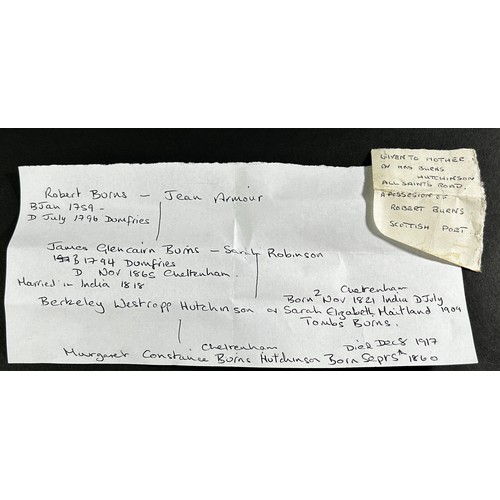 Robert Burns — Jean Armour
B Jan 1759 -
D July 1796 Dumfries
James Glencairn Burns — Sarah Robinson
B 1794 Dumfries
D Nov 1865 Cheltenham.
Married in India 1818
2 Cheltenham
Born Nov 1821 India D July
Berkeley Westropp Hutchinson Sarah Elizabeth Maitland 1909
Tombs Burns.
Cheltenham Died Dec 8 1917
Margaret Constance Burns Hutchinson Born Sept 5th 1860
GIVEN TO MOTHER
BY MRS BURNS
HUTCHINSON
ALL SAINTS ROAD.
A POSSESION OF
ROBERT BURNS
SCOTTISH POET